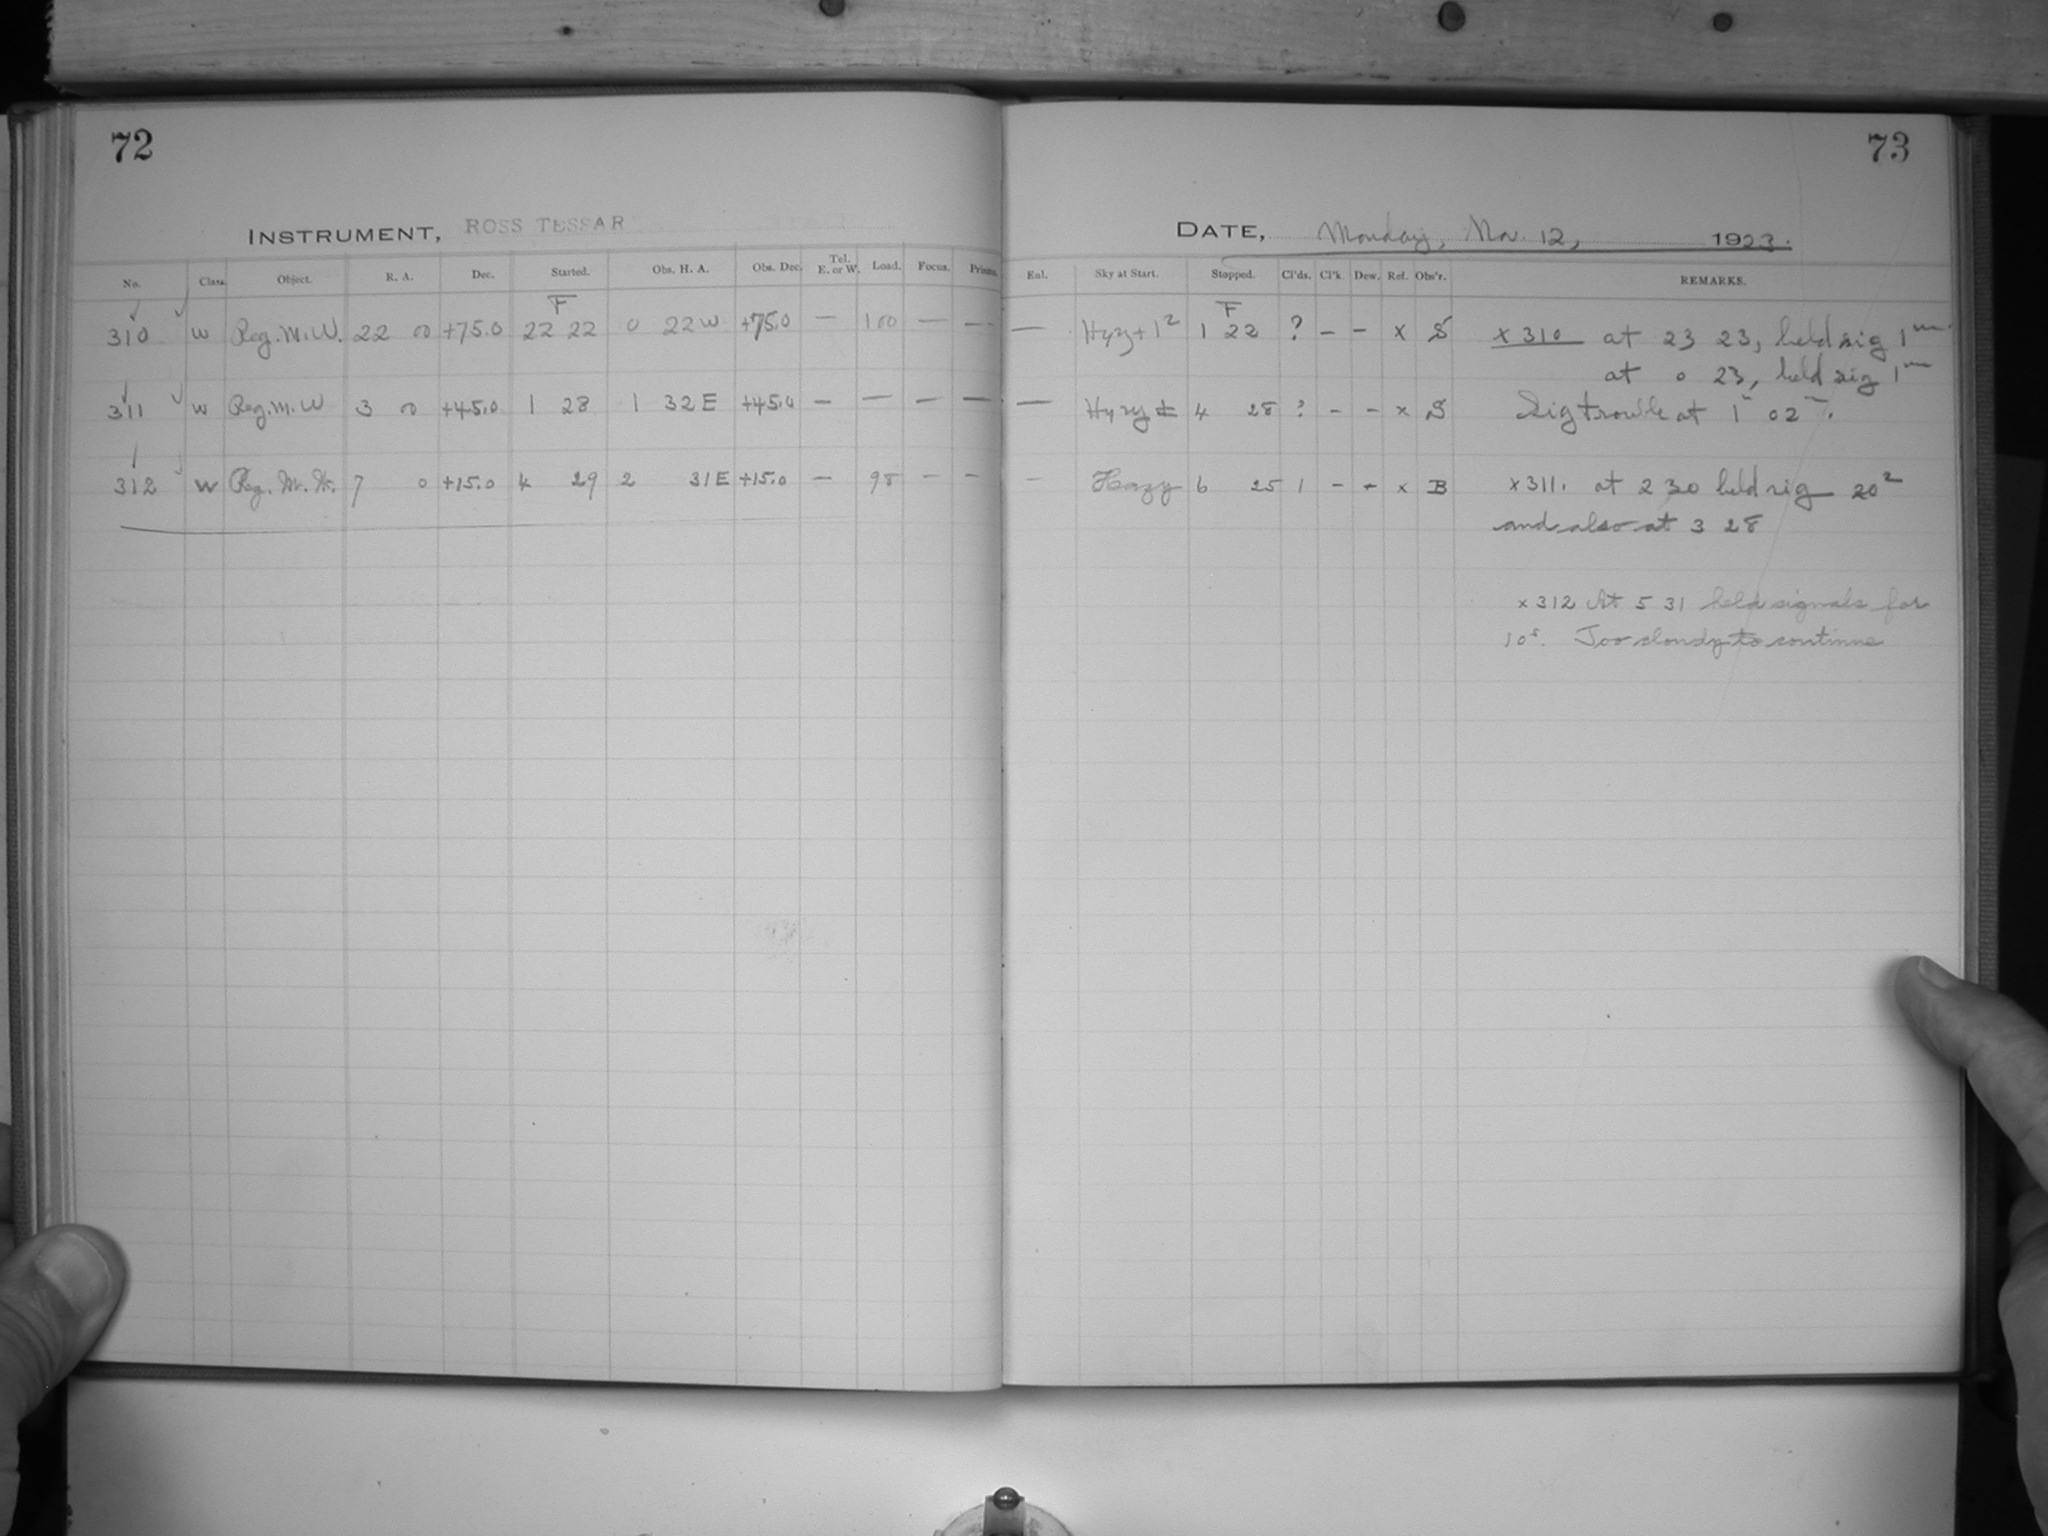 72
INSTRUMENT, ROSS TESSAR
No. Class. Object. R. A. Dec. Started. Obs. H. A. Obs. Dec. Tel. E. or W. Load. Focus. Prisms.
F
310 W Reg. M. W. 22 00 +75.0 22 22 0 22 W +75.0 — 100 — —
311 W Reg. M. W 3 00 +45.0 1 28 1 32 E +45.0 — — — —
312 W Reg. M. W. 7 0 +15.0 4 29 2 31 E +15.0 — 98 — —
73
DATE, Monday, Nov. 12, 1923.
Enl. Sky at Start. Stopped. Cl'ds. Cl'k Dew. Ref. Obs'r. REMARKS.
F
— Hyzy+1² 1 22 ? – – x S x 310 at 23 23, held sig 1m.
at 0 23, held sig 1m
— Hyzy ± 4 28 ? – – x S Sig trouble at 1 02
— Hazy 6 25 1 – – x B x 311. at 2 30 held sig 20s
and also at 3 28
x 312 At 5 31 held signals for
10s. Too cloudy to continue